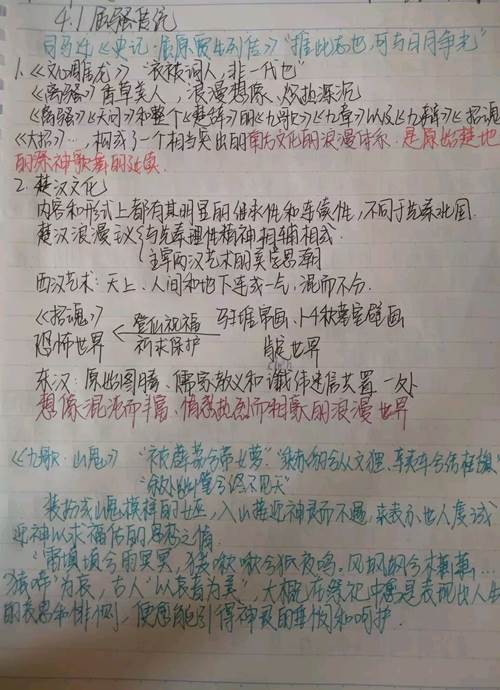 4.1 屈骚传统
司马迁《史记·屈原贾生列传》"推此志也,可与日月争光"
1.《文心雕龙》"衣被词人,非一代也"
《离骚》香草美人,浪漫想像、炽热深沉
《离骚》《天问》和整个《楚辞》的《九歌》《九章》以及《九辩》《招魂》
《大招》…,构成了一个相当突出的南方文化的浪漫体系.是原始楚地
的祭神歌舞的延续.
2. 楚汉文化
内容和形式上都有其明显的继承性和连续性,不同于先秦北国.
楚汉浪漫主义与先秦理性精神相辅相成
主宰两汉艺术的美学思潮
西汉艺术:天上、人间和地下连成一气,混而不分.
《招魂》 登仙祝福 马王堆帛画、卜千秋墓室壁画
恐怖世界 祈求保护 世界
东汉:原始图腾、儒家教义和谶纬迷信共置一处
想像混沌而丰富、情感热烈而粗豪的浪漫世界
《九歌·山鬼》"被薜荔兮带女萝""乘赤豹兮从文狸,辛夷车兮结桂旗"
"余处幽篁兮终不见天"
装扮成山鬼模样的女巫,入山接近神灵而不遇,来表示世人虔诚
迎神以求福佑的思恋之情.
"雷填填兮雨冥冥,猨啾啾兮狖夜鸣.风飒飒兮木萧萧…
为哀,古人"以哀音为美",大概在祭祀中愈是表现出人生
的哀思和悱恻,便愈能引得神灵的垂悯和呵护.